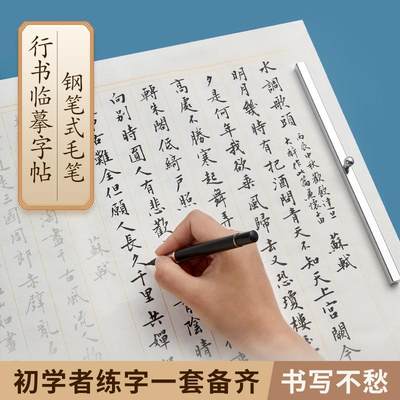 钢笔式毛笔
行书临摹字帖
水調歌頭
丙辰中秋歡飲達旦
大醉作此篇兼懷子由
蘇軾
明月幾時有把酒問青天不知天上宮闕今
夕是何年我欲乘風歸去又恐瓊樓
高處不勝寒起舞弄
轉朱閣低綺戶照
向別時圓人有悲歡
陰晴
古難全但願人長久千里共嬋
蘇軾
淘盡千古風流人
是三國周郎赤壁亂
初学者练字一套备齐
书写不愁